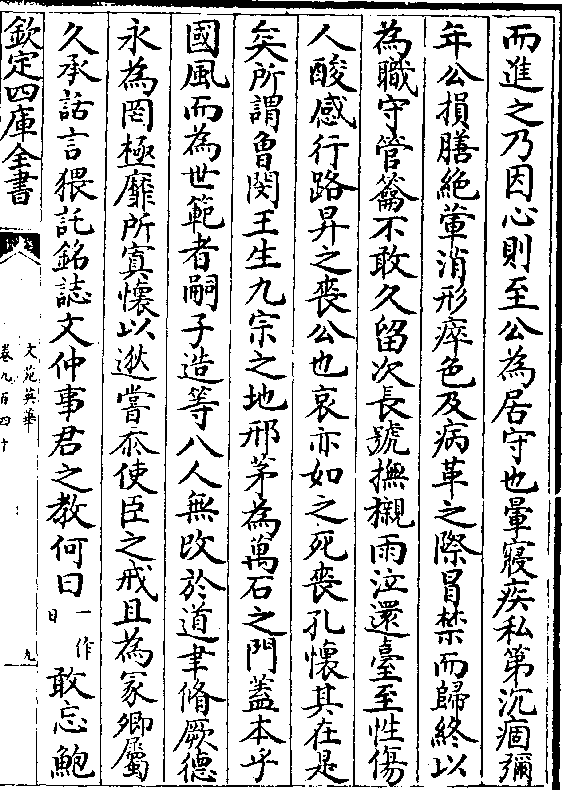 而進之乃因心則至公為居守也暈寢疾私第沉痼彌
年公損膳絶葷消形瘁色及病革之際冒禁而歸終以
為職守管籥不敢久留次長號撫櫬雨泣還臺至性傷
人酸感行路昇之喪公也哀亦如之死喪孔懷其在是
矣所謂魯閔王生九宗之地邢茅為萬石之門蓋本乎
國風而為世範者嗣子造等八人無改於道聿脩厥德
永為罔極靡所寘懷以逖嘗忝使臣之戒且為冢卿屬
久承話言猥託銘誌文仲事君之教何日一作曰敢忘鮑
欽定四庫全書
文苑英華
卷九百四十
九